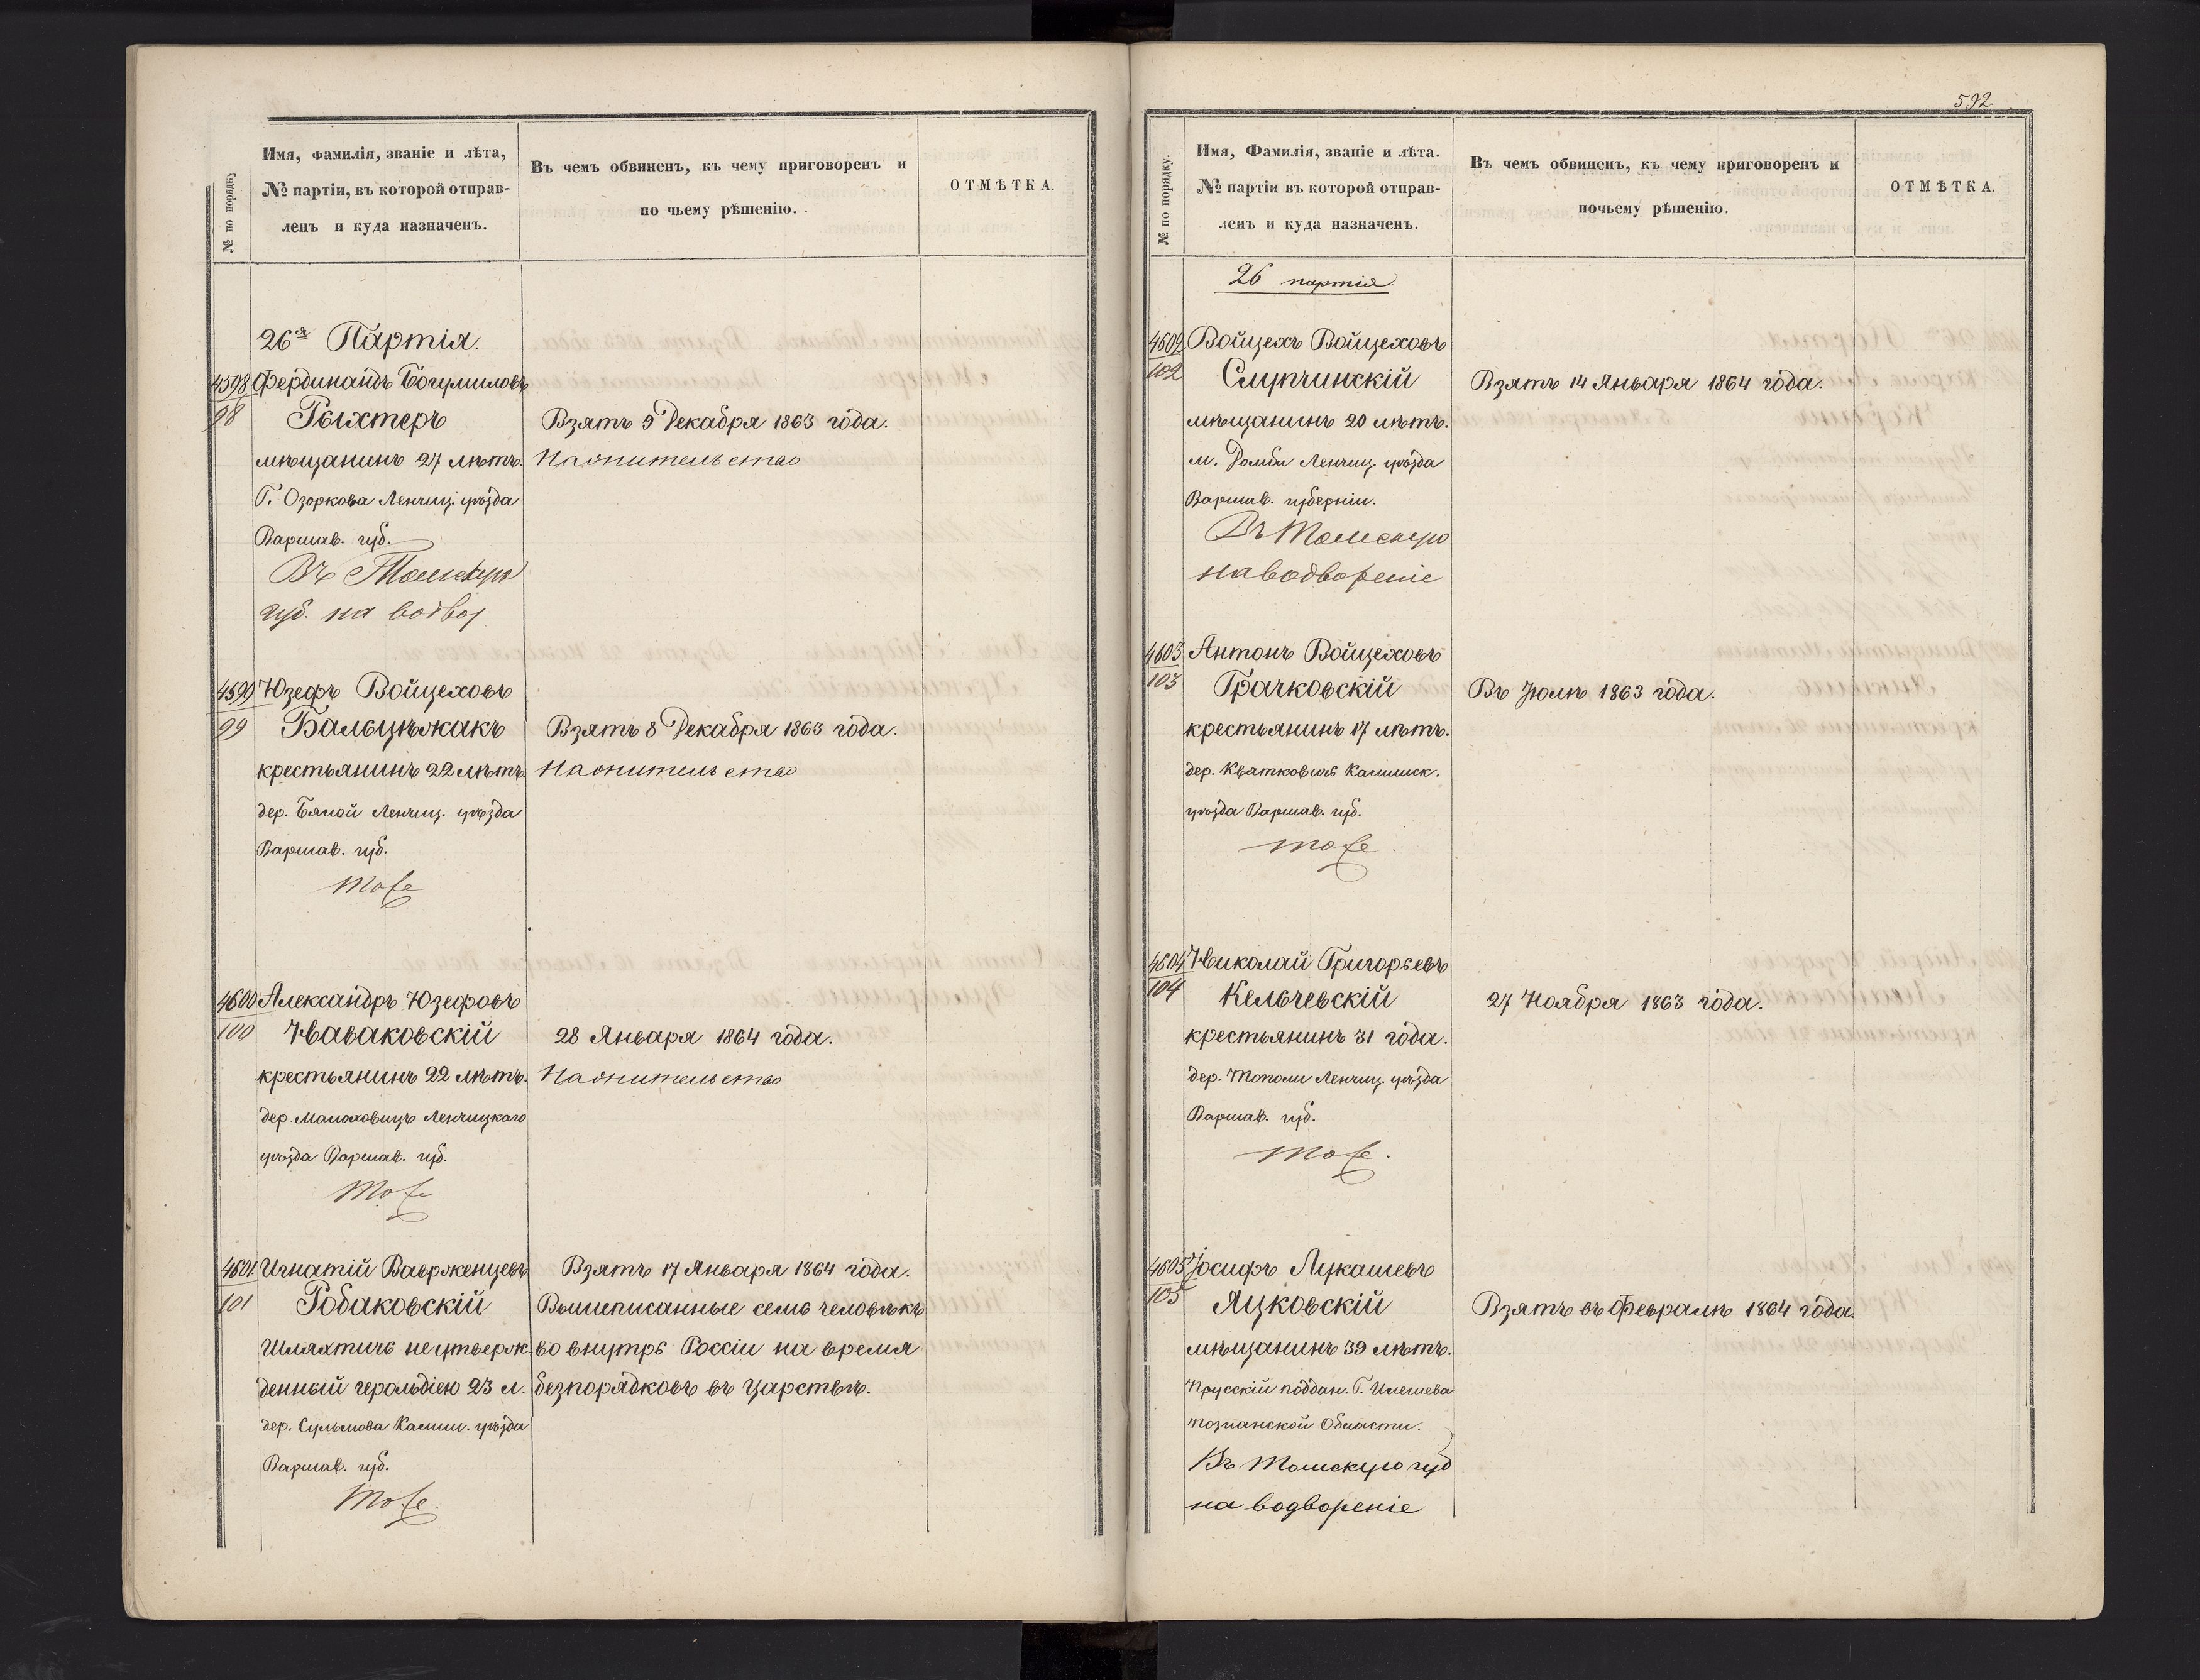 № по порядку
Имя, фамилія, званіе и лѣта,
№ партіи, въ которой отправ-
ленъ и куда назначенъ.
Въ чемъ обвиненъ, къ чему приговоренъ и
по чьему рѣшенію.
ОТМѢТКА.
26я Партія.
4598
98
Фердинандъ Богумиловъ
Рыхтеръ
мѣщанинъ 27 лѣтъ.
Г. Озоркова Ленчиц. уѣзда
Варшав. губ.
Въ Томскую
губ. на водвор
Взятъ 9 Декабря 1863 года.
На жительство
4599
99
Юзефъ Войцеховъ
Бальцѣжакъ
крестьянинъ 22 лѣтъ
дер. Бялой Ленчиц. уѣзда
Варшав. губ.
тоже
Взятъ 8 Декабря 1863 года.
На жительство
4600
100
Александръ Юзефовъ
Наваковскій
крестьянинъ 22 лѣтъ.
дер. Малаховицъ Ленчицкаго
уѣзда Варшав. губ.
тоже
28 Января 1864 года.
На жительство
4601.
101
Игнатій Ваврженцевъ
Робаковскій
Шляхтичъ неутверж-
денный герольдіею 23 л.
дер. Сульмова Калиш. уѣзда
Варшав. губ.
тоже.
Взятъ 17 Января 1864 года.
Вышеписанные семь человѣкъ
во внутрь Россіи на время
безпорядковъ въ Царствѣ.
592.
№ по порядку.
Имя, Фамилія, званіе и лѣта.
№ партіи въ которой отправ-
ленъ и куда назначенъ.
Въ чемъ обвиненъ, къ чему приговоренъ и
почьему рѣшенію.
ОТМѢТКА.
26 партія.
4602
102
Войцехъ Войцеховъ
Слупчинскій
мѣщанинъ 20 лѣтъ.
м. Домби Ленчиц. уѣзда
Варшав. губерніи.
Въ Томскую
на водвореніе
Взятъ 14 Января 1864 года.
4603
103
Антонъ Войцеховъ
Грачковскій
крестьянинъ 17 лѣтъ.
дер. Квятковичъ Калишск.
уѣзда Варшав. губ.
тоже.
Въ Іюлѣ 1863 года.
4604
104
Николай Григорьевъ
Кельчевскій
крестьянинъ 31 года.
дер. Тополи Ленчиц. уѣзда
Варшав. губ.
тоже.
27 Ноября 1863 года.
4605
105
Іосифъ Лукашевъ
Яцковскій
мѣщанинъ 39 лѣтъ.
Прусскій поддан. Г. Плешева
Познанской Области.
Въ Томскую губ
на водвореніе
Взятъ въ Февралѣ 1864 года.